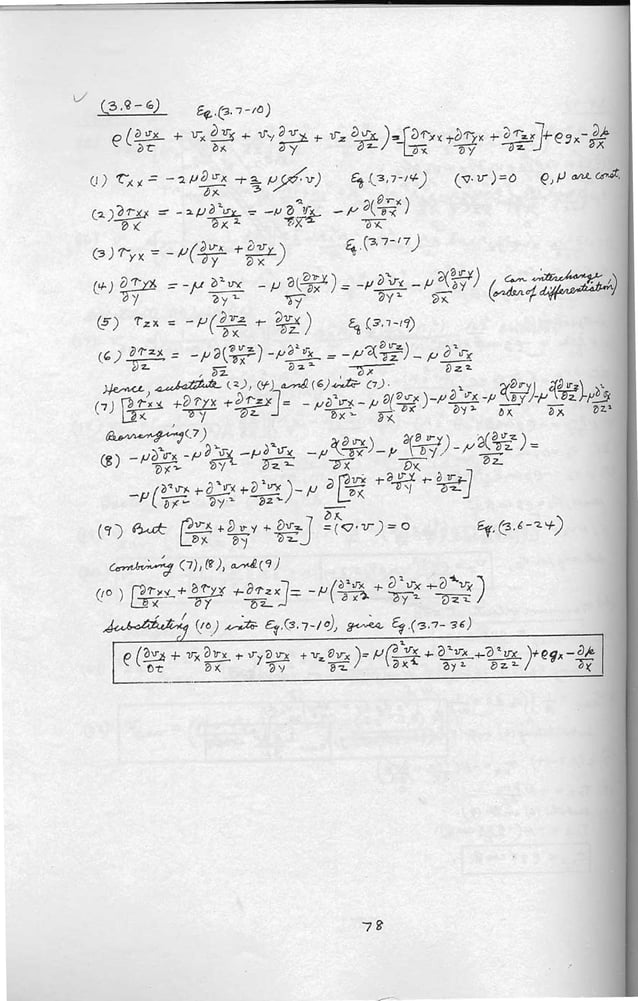 (3.8-6) Eq.(3.7-10)
ρ(∂vx/∂t + vx ∂vx/∂x + vy ∂vx/∂y + vz ∂vx/∂z) = -[∂τxx/∂x + ∂τyx/∂y + ∂τzx/∂z] + ρgx - ∂p/∂x
(1) τxx = -2μ ∂vx/∂x + 2/3 μ(∇·v) Eq (3.7-14) (∇·v)=0 ρ, μ are const.
(2) ∂τxx/∂x = -2μ ∂²vx/∂x² = -μ ∂²vx/∂x² - μ ∂(∂vx/∂x)/∂x
(3) τyx = -μ(∂vx/∂y + ∂vy/∂x) Eq.(3.7-17)
(4) ∂τyx/∂y = -μ ∂²vx/∂y² - μ ∂(∂vy/∂x)/∂y = -μ ∂²vx/∂y² - μ ∂(∂vy/∂y)/∂x (can interchange order of differentiation)
(5) τzx = -μ(∂vz/∂x + ∂vx/∂z) Eq (3.7-19)
(6) ∂τzx/∂z = -μ ∂(∂vz/∂x)/∂z - μ ∂²vx/∂z² = -μ ∂(∂vz/∂z)/∂x - μ ∂²vx/∂z²
Hence, substitute (2), (4) and (6) into (7).
(7) [∂τxx/∂x + ∂τyx/∂y + ∂τzx/∂z] = -μ ∂²vx/∂x² - μ ∂(∂vx/∂x)/∂x - μ ∂²vx/∂y² - μ ∂(∂vy/∂y)/∂x - μ ∂(∂vz/∂z)/∂x - μ ∂²vx/∂z²
Rearranging (7)
(8) -μ ∂²vx/∂x² - μ ∂²vx/∂y² - μ ∂²vx/∂z² - μ ∂(∂vx/∂x)/∂x - μ ∂(∂vy/∂y)/∂x - μ ∂(∂vz/∂z)/∂z =
-μ(∂²vx/∂x² + ∂²vx/∂y² + ∂²vx/∂z²) - μ ∂[∂vx/∂x + ∂vy/∂y + ∂vz/∂z]/∂x
(9) But [∂vx/∂x + ∂vy/∂y + ∂vz/∂z] = (∇·v) = 0 Eq.(3.6-24)
Combining (7), (8), and (9)
(10) [∂τxx/∂x + ∂τyx/∂y + ∂τzx/∂z] = -μ(∂²vx/∂x² + ∂²vx/∂y² + ∂²vx/∂z²)
Substituting (10) into Eq.(3.7-10), gives Eq.(3.7-36)
ρ(∂vx/∂t + vx ∂vx/∂x + vy ∂vx/∂y + vz ∂vx/∂z) = μ(∂²vx/∂x² + ∂²vx/∂y² + ∂²vx/∂z²) + ρgx - ∂p/∂x
78